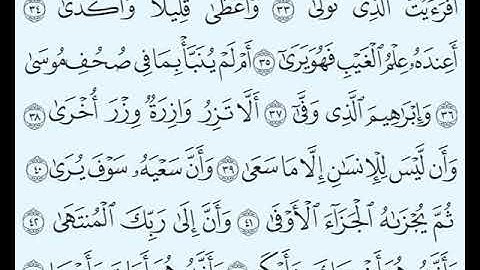 أَفَرَءَيْتَ ٱلَّذِى تَوَلَّىٰ ٣٣ وَأَعْطَىٰ قَلِيلًا وَأَكْدَىٰٓ ٣٤
أَعِندَهُۥ عِلْمُ ٱلْغَيْبِ فَهُوَ يَرَىٰٓ ٣٥ أَمْ لَمْ يُنَبَّأْ بِمَا فِى صُحُفِ مُوسَىٰ
٣٦ وَإِبْرَٰهِيمَ ٱلَّذِى وَفَّىٰٓ ٣٧ أَلَّا تَزِرُ وَازِرَةٌ وِزْرَ أُخْرَىٰ ٣٨
وَأَن لَّيْسَ لِلْإِنسَٰنِ إِلَّا مَا سَعَىٰ ٣٩ وَأَنَّ سَعْيَهُۥ سَوْفَ يُرَىٰ ٤٠
ثُمَّ يُجْزَىٰهُ ٱلْجَزَآءَ ٱلْأَوْفَىٰ ٤١ وَأَنَّ إِلَىٰ رَبِّكَ ٱلْمُنتَهَىٰ ٤٢